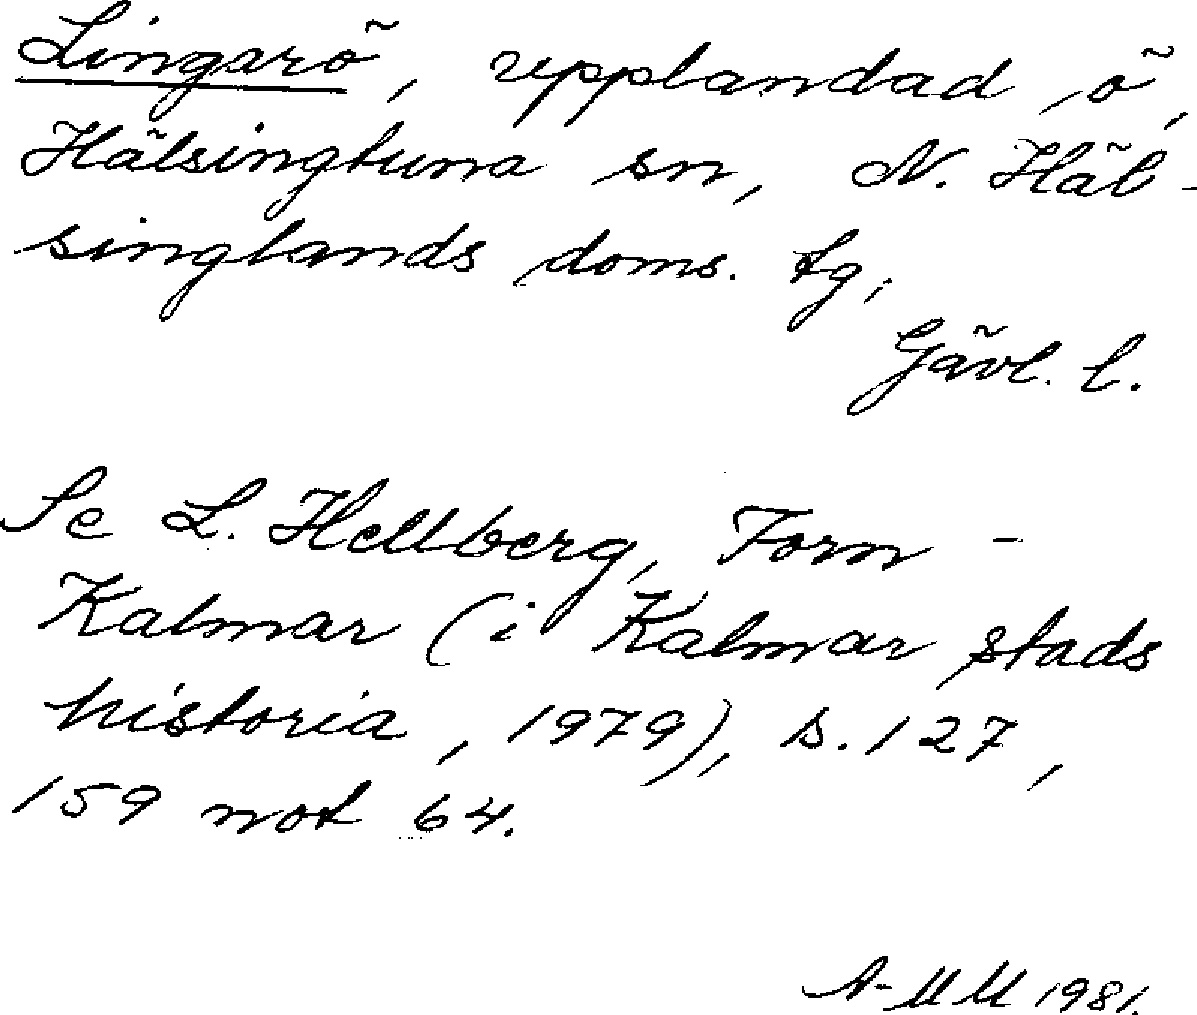 Lingarö, upplandad ö,
Hälsingtuna sn, N. Häl-
singlands doms. tg,
Gävl. l.
Se L. Hellberg, Forn-
Kalmar (i Kalmar stads
historia, 1979), s. 127,
159 not 64.
A-MM 1981.